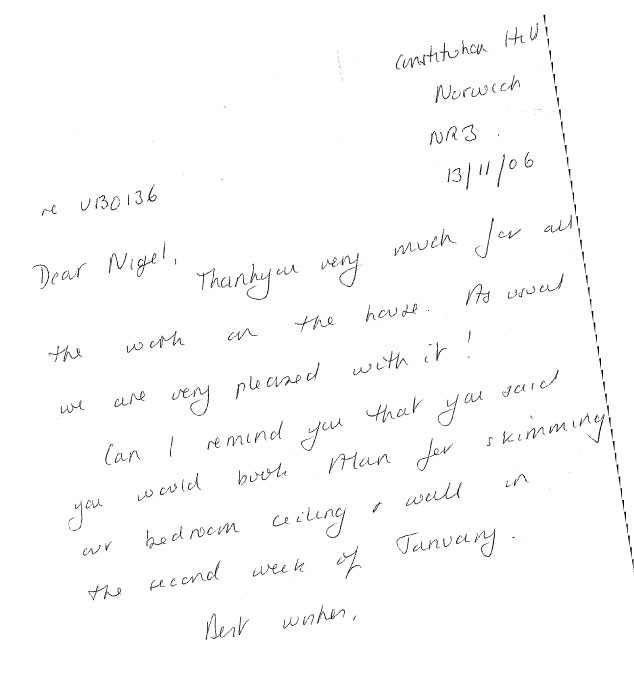 Constitution Hill
Norwich
NR3.
13/11/06
re UB0136
Dear Nigel,
Thankyou very much for all
the work on the house. As usual
we are very pleased with it!
Can I remind you that you said
you would book Alan for skimming
our bedroom ceiling & wall in
the second week of January.
Best wishes,